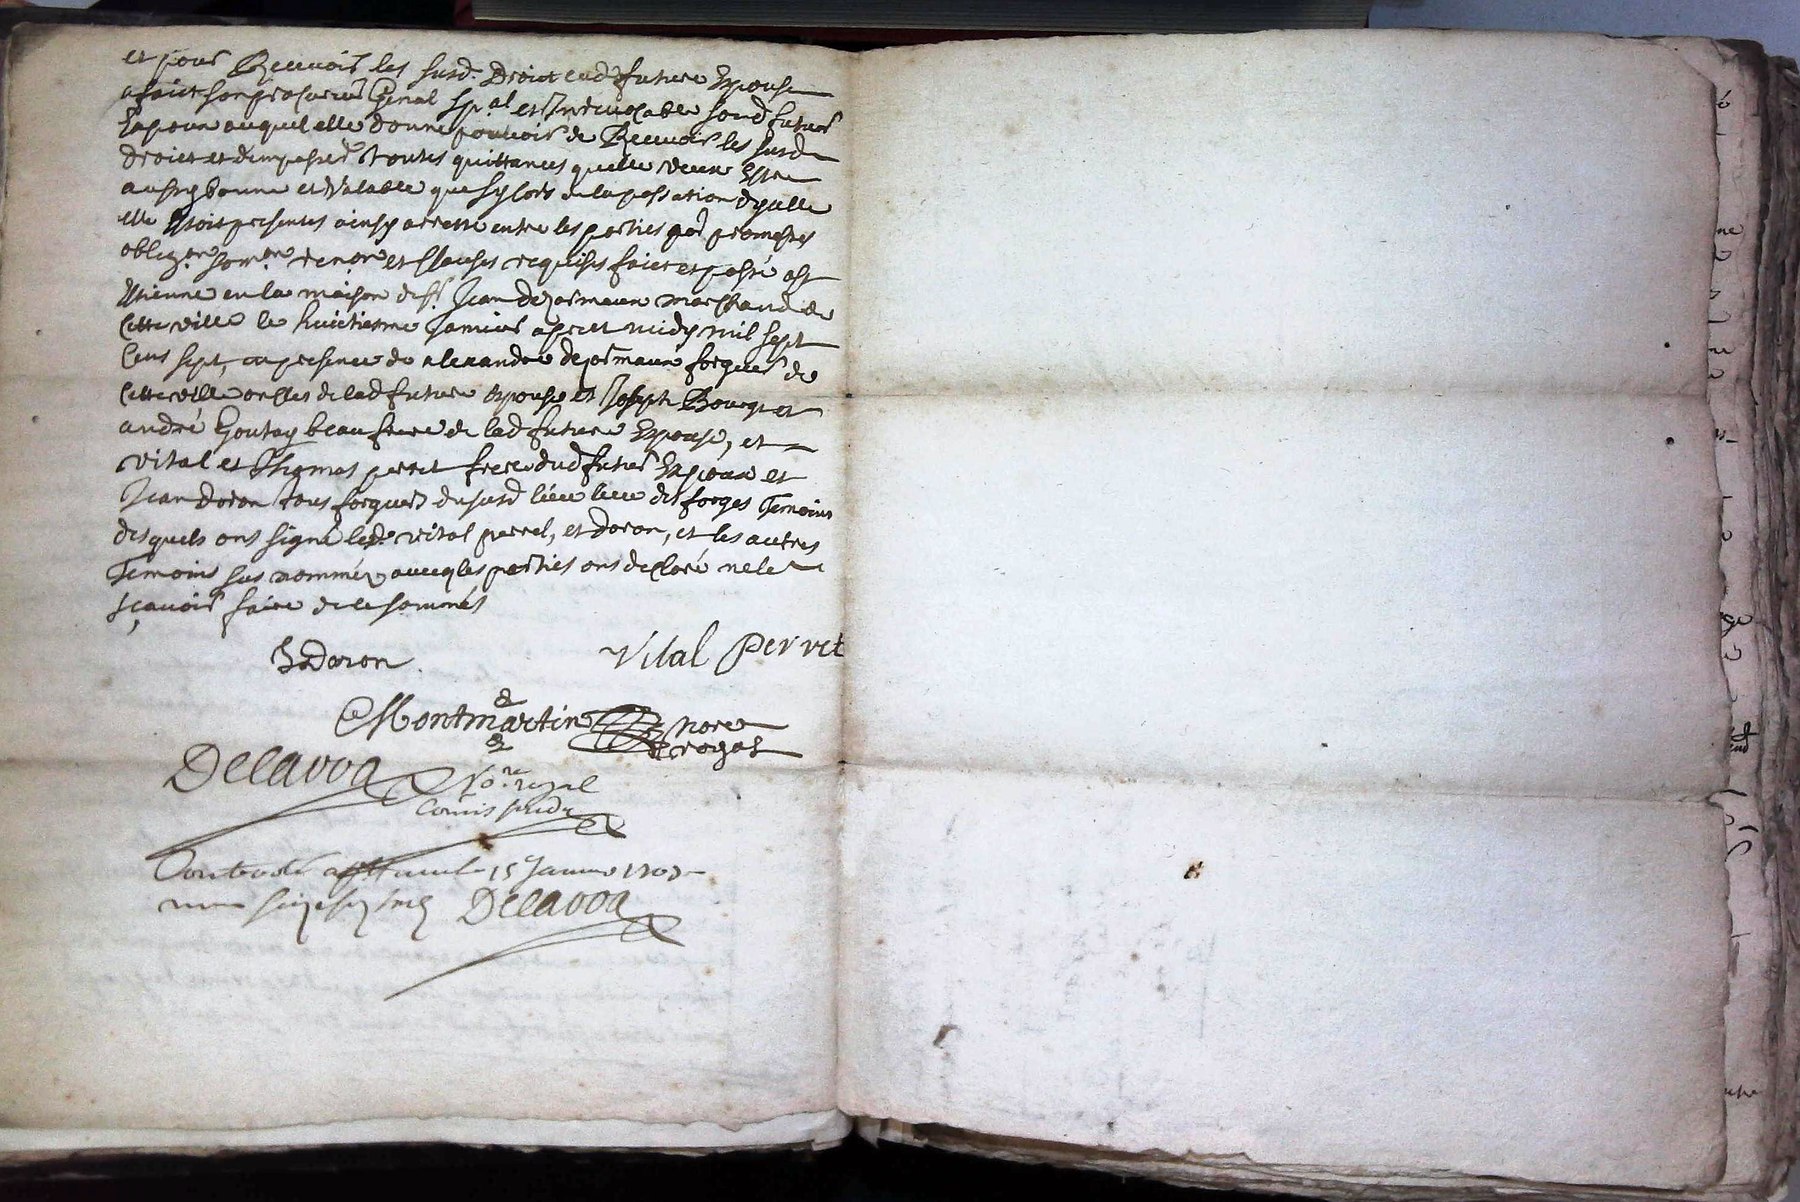 et pour Recevoir les susd. Droict lad. future Espouse
a faict son procureur Genal spal et Irrevocable sond futur
Espoux auquel elle donne pouvoir de Recevoir les susd
droict et d'en passer toutes quittances quelle veux Estre
aussy bonne et Valable que sy lors de la passation d'ycelle
elle Estoit presentes ainsy arresté entre les parties par promesses
obligon somon renon et Clauses requises faict et passé a St
Estienne en la maison de sr. Jean dejarmaux marchand de
Cette ville le huictiesme Janvier apres midy mil sept
Cens sept, en presence de alexandre dejarmaux forgeur de
Cette ville oncles de lad future Espouse et Joseph Bourget
andré Goutay beau frere de lad future Espouse, et
vital et Thomas perret frere dud futur Espoux et
Jean doron tous forgeurs du susd lieu des forges Temoins
desquels ont signé led. vital perrel, et doron, et les autres
Temoins sus nommés avecq les parties ont declaré ne le
sçavoir faire de ce sommés
Doron
Vital Perret
Montmartin
Nore
royal
Delavoa Nore royal
Comis
Controllé a St Estienne le 15e Janvier 1707
Delavoa